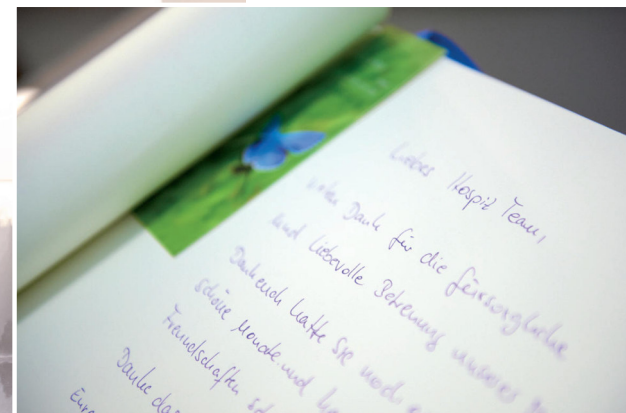 Liebes Hospiz Team,
vielen Dank für die fürsorgliche
und liebevolle Betreuung unserer
Dank euch hatte sie noch
schöne Monate und
Freundschaften
Danke